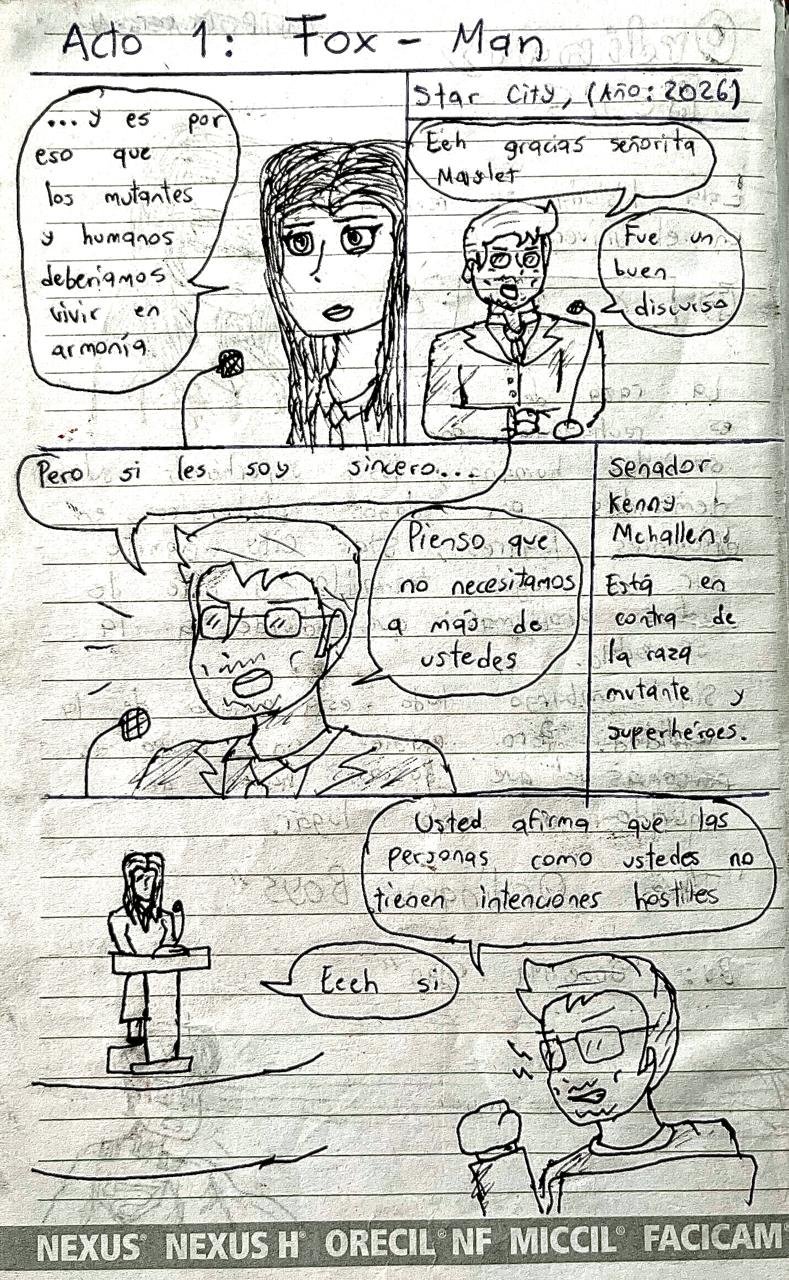 Acto 1: Fox - Man
... y es por
eso que
los mutantes
y humanos
deberíamos
vivir en
armonía
Star City, (Año: 2026)
Eeh gracias señorita
Fue un
buen
discurso
Pero si les soy sincero...
Pienso que
no necesitamos
a más de
ustedes
Senador
Kenny
Mchallen
Está en
contra de
la raza
mutante y
superhéroes.
Usted afirma que las
personas como ustedes no
tienen intenciones hostiles
Eeeh si
NEXUS® NEXUS H® ORECIL® NF MICCIL® FACICAM®